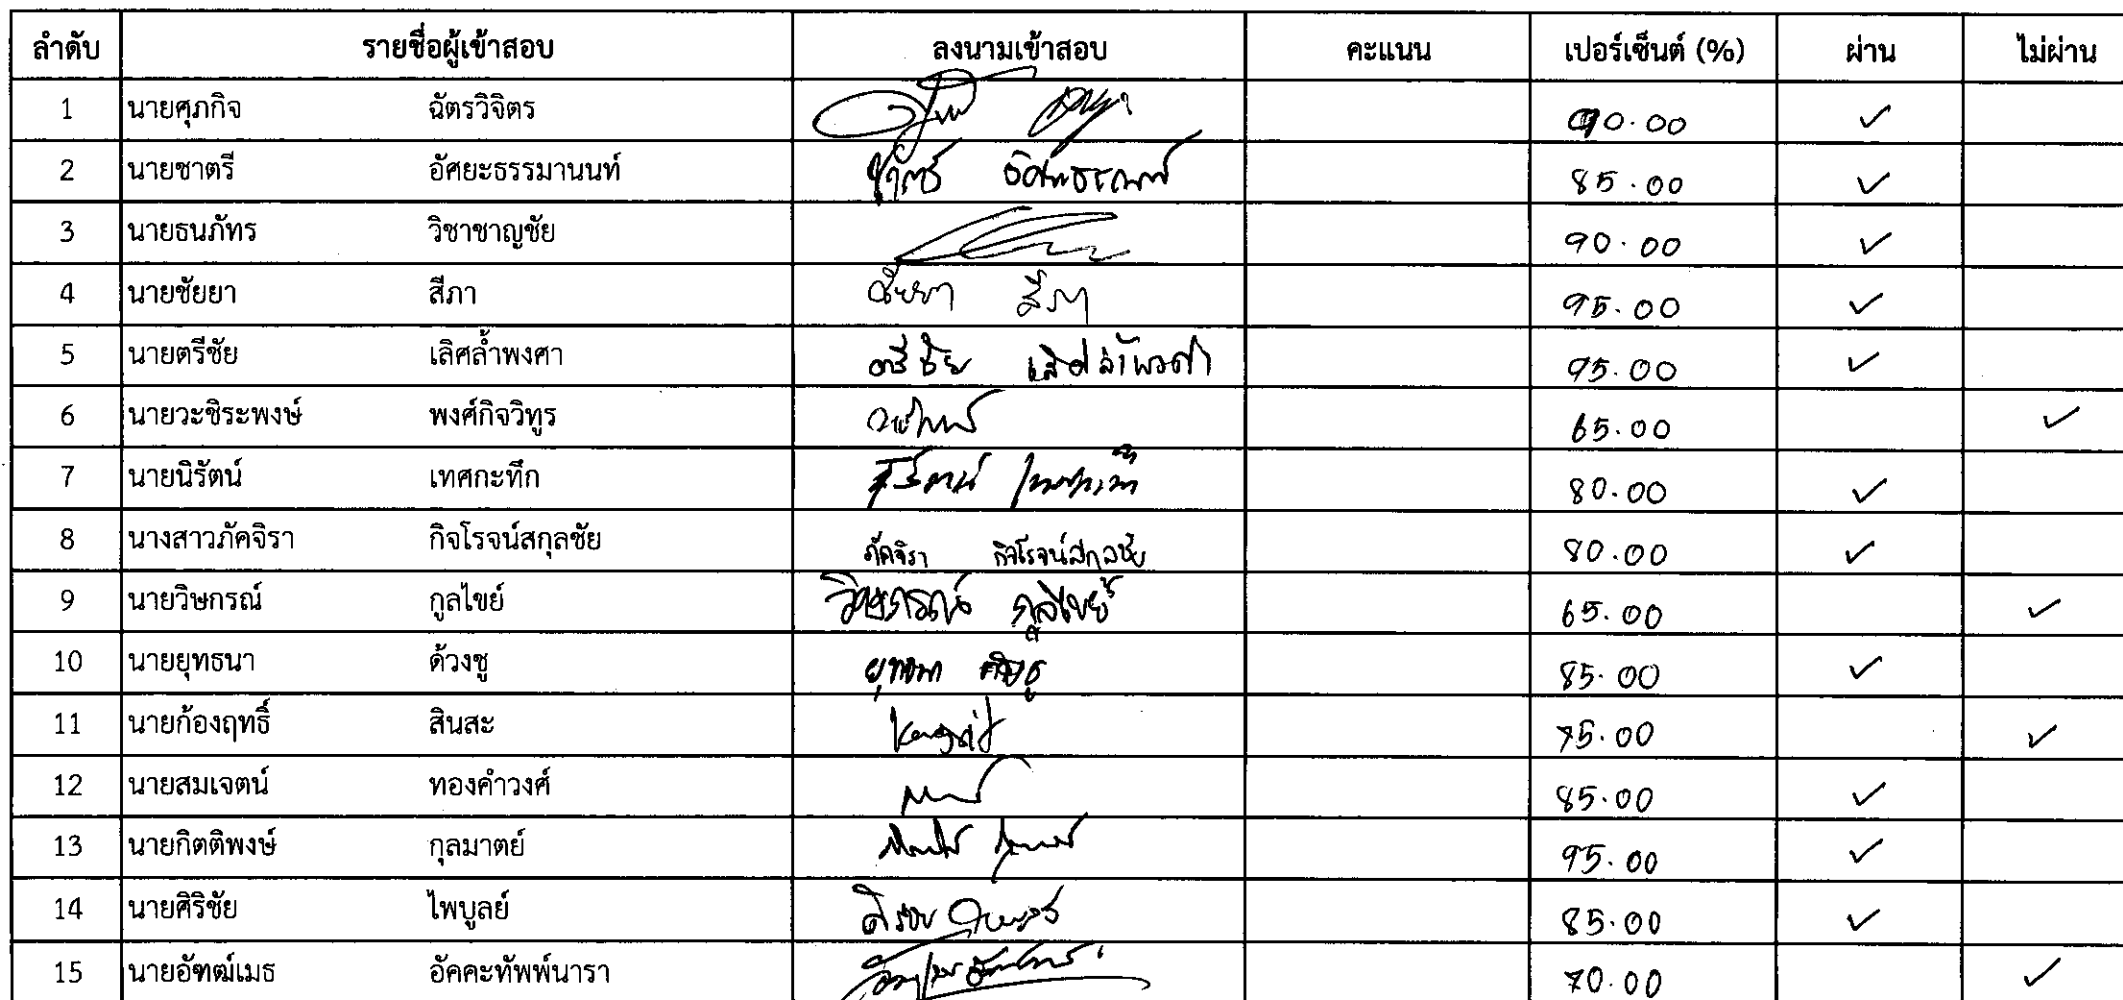 ลำดับ รายชื่อผู้เข้าสอบ ลงนามเข้าสอบ คะแนน เปอร์เซ็นต์ (%) ผ่าน ไม่ผ่าน
1 นายศุภกิจ ฉัตรวิจิตร 90.00 ✓
2 นายชาตรี อัศยะธรรมานนท์ 85.00 ✓
3 นายธนภัทร วิชาชาญชัย 90.00 ✓
4 นายชัยยา สีภา ชัยยา สีภา 95.00 ✓
5 นายตรีชัย เลิศล้ำพงศา ตรีชัย เลิศล้ำพงศา 95.00 ✓
6 นายวะชิระพงษ์ พงศ์กิจวิทูร 65.00 ✓
7 นายนิรัตน์ เทศกะทึก 80.00 ✓
8 นางสาวภัคจิรา กิจโรจน์สกุลชัย ภัคจิรา กิจโรจน์สกุลชัย 80.00 ✓
9 นายวิษกรณ์ กูลไขย์ วิษกรณ์ กูลไขย์ 65.00 ✓
10 นายยุทธนา ด้วงชู ยุทธนา ด้วงชู 85.00 ✓
11 นายก้องฤทธิ์ สินสะ 75.00 ✓
12 นายสมเจตน์ ทองคำวงศ์ 85.00 ✓
13 นายกิตติพงษ์ กุลมาตย์ 95.00 ✓
14 นายศิริชัย ไพบูลย์ 85.00 ✓
15 นายอัฑฒ์เมธ อัคคะทัพพ์นารา 70.00 ✓